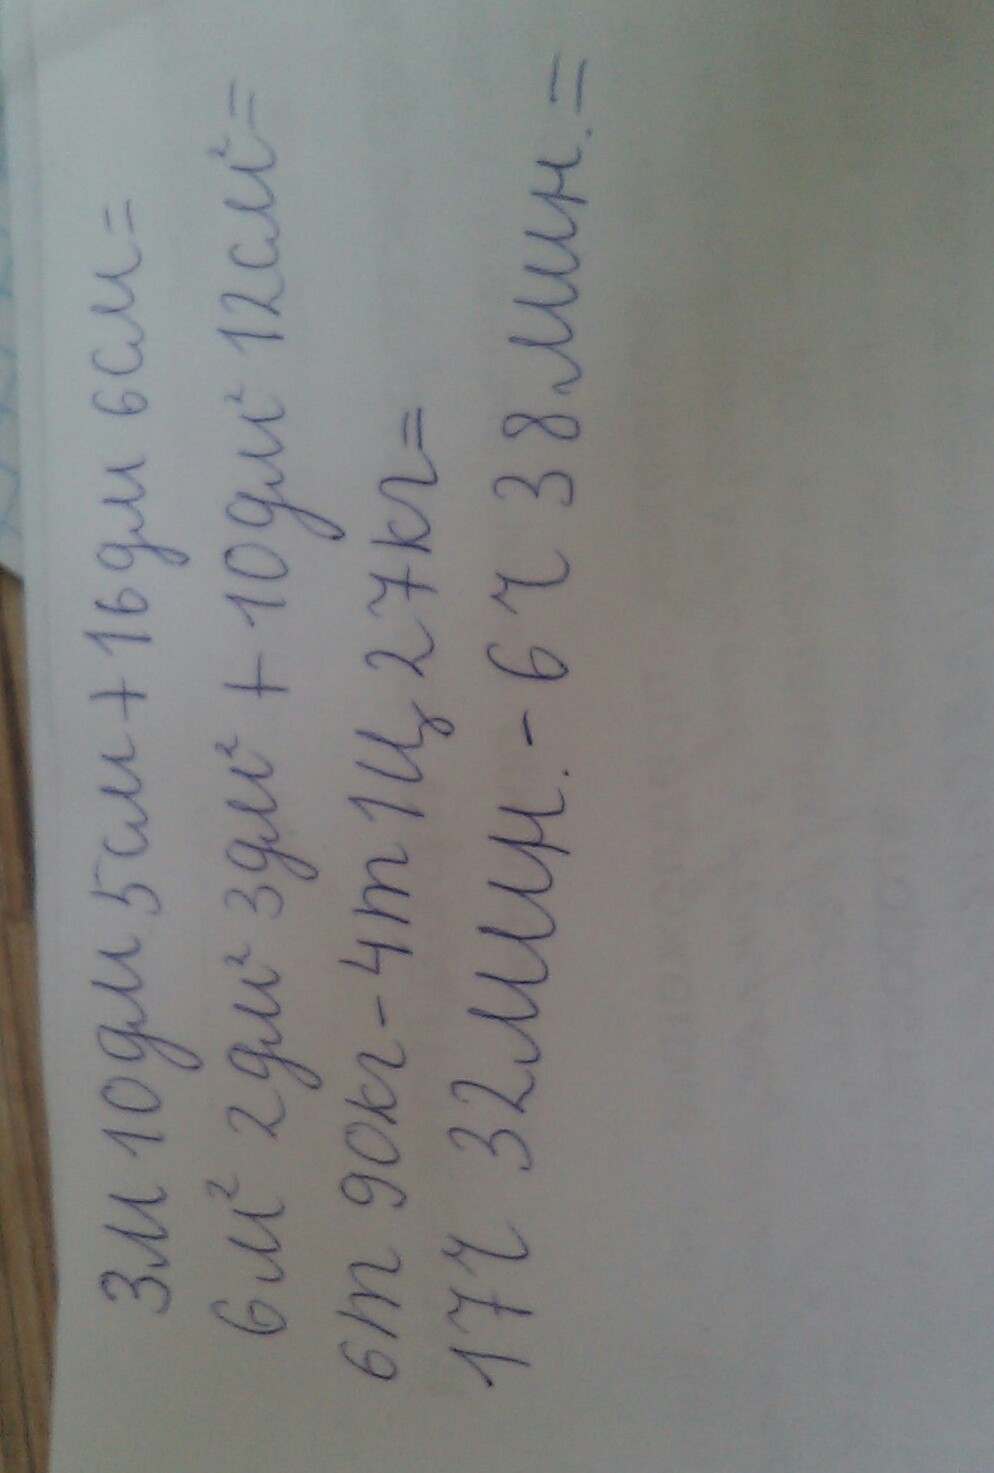 3м 10дм 5см + 16дм 6см =
6м² 2дм² 3дм² + 10дм² 12см² =
6т 90кг - 4т 1ц 27кг =
17ч 32мин. - 6ч 38мин. =